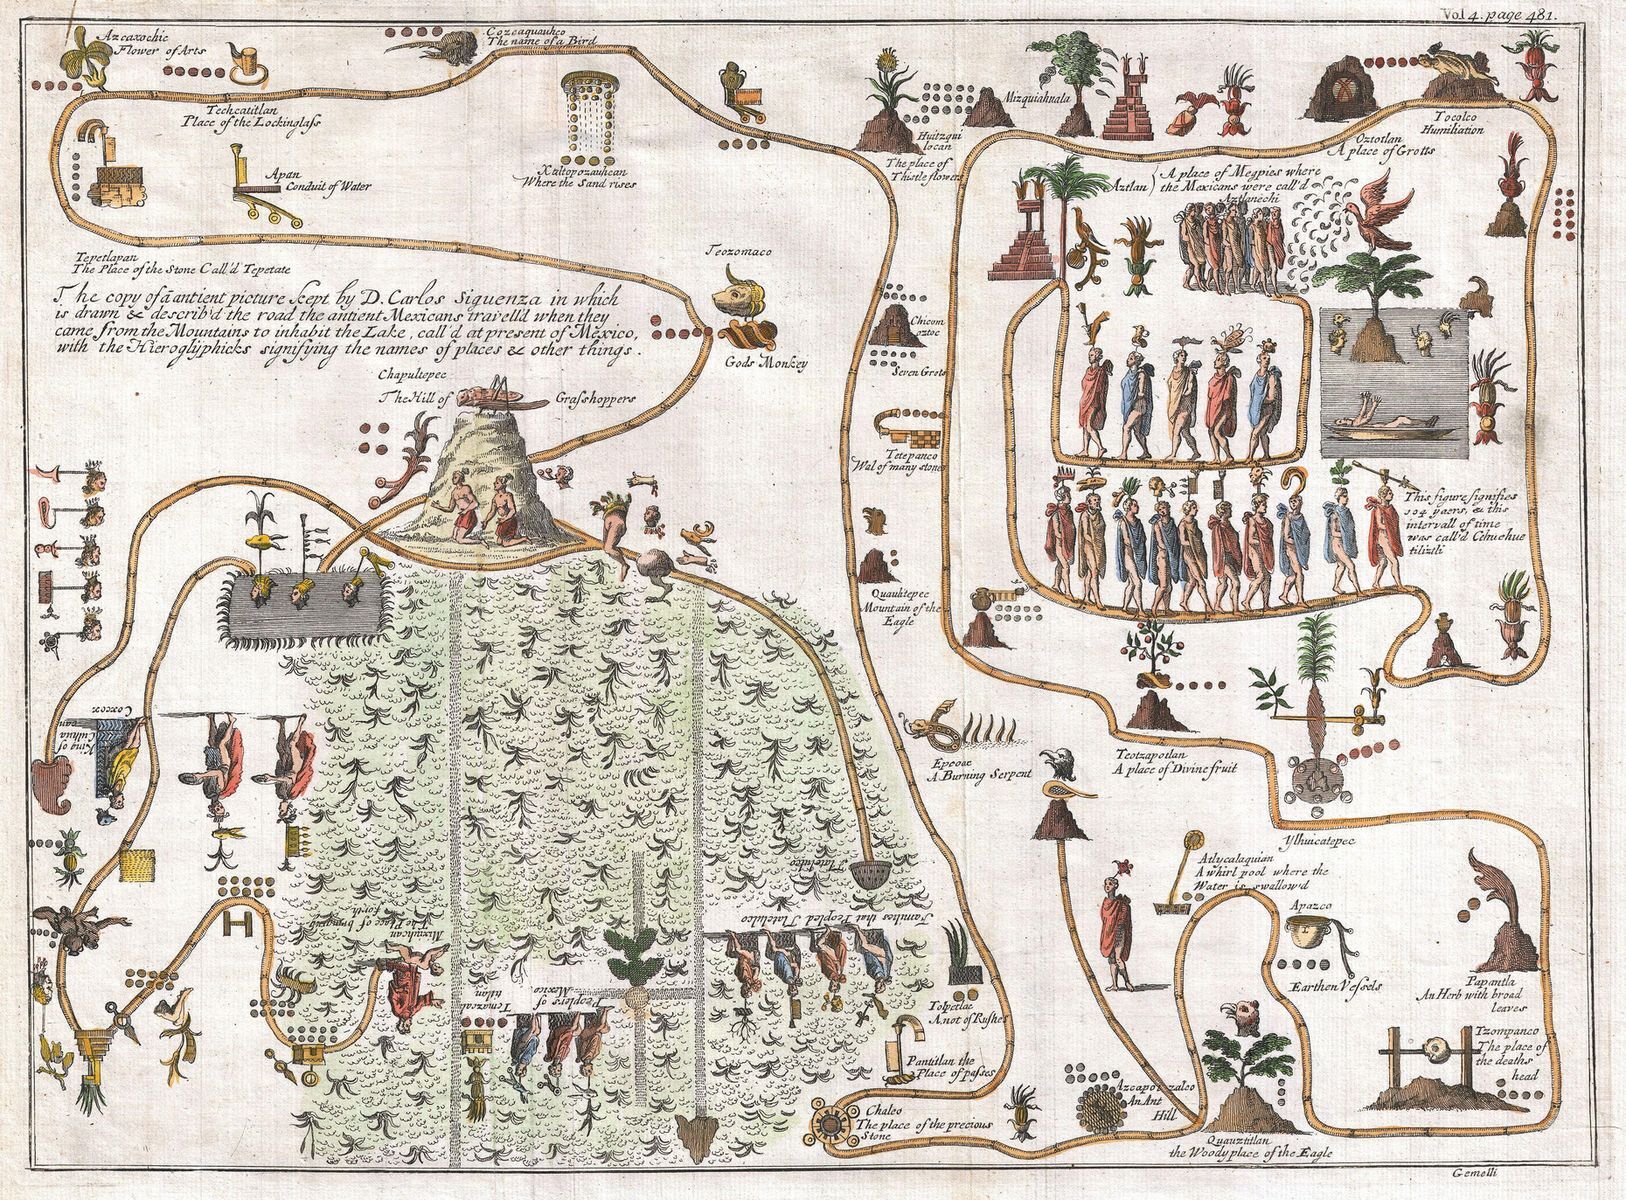 Vol 4. page 481.
Azcaxochic
Flower of Arts
Cozcaquauhco
The name of a Bird
Techcatitlan
Place of the Lockinglass
Xaltopozauhcan
Where the Sand rises
Huitzqui
locan
The place of
Thistle flowers
Mizquiahuala
Oztotlan
A place of Grotts
Tocolco
Humiliation
Apan
Conduit of Water
Aztlan
A place of Megpies where
the Mexicans were call'd
Aztlanechi
Tepetlapan
The Place of the Stone Call'd Tepetate
The copy of ā antient picture kept by D. Carlos Siguenza in which
is drawn & describ'd the road the antient Mexicans travell'd when they
came from the Mountains to inhabit the Lake, call'd at present of Mexico,
with the Hieroglyphicks signifying the names of places & other things.
Teozomaco
Gods Monkey
Chapultepec
The Hill of Grasshoppers
Chicom
oztoc
Seven Grots
Tetepanco
Wal of many stones
Quauhtepec
Mountain of the
Eagle
This figure signifis
104 yaers, & this
intervall of time
was call'd Cehuehue
tiliztli
Epcoac
A Burning Serpent
Teotzapotlan
A place of Divine fruit
Ylhuicatepec
Coxcox
King of
Culhua
can
Atlycalaquian
A whirl pool where the
Water is swallow'd
Apazco
Earthen Vessels
Papantla
An Herb with broad
leaves
Tzompanco
The place of
the deaths
head
Tlatelulco
Families that Peopled Tlatelulco
Mixiuhcan
The Place of bringing
forth
Peoplers of
Mexico
Temazcal
titlan
Tolpetlac
A not of Rushes
Pantitlan the
Place of passes
Chalco
The place of the precious
Stone
Azcapotzalco
An Ant
Hill
Quauztitlan
the Woody place of the Eagle
Gemelli